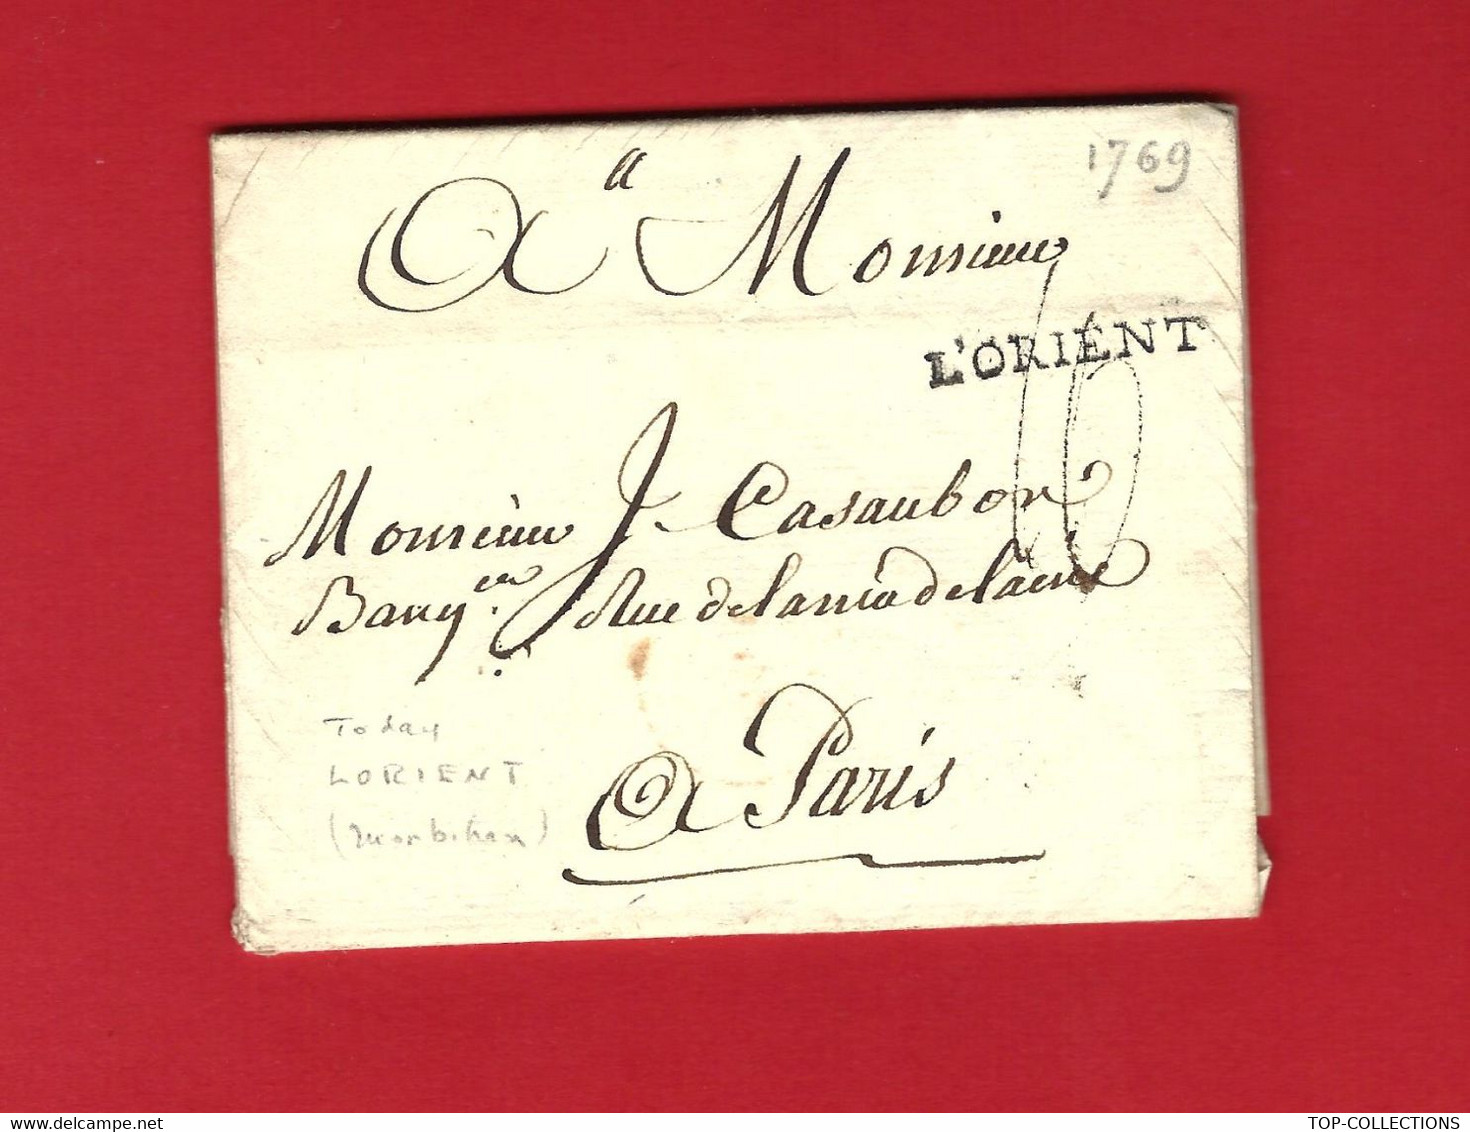 1769
A Monsieur
L'ORIENT
10
Monsieur J. Casaubon
Banq.er Rue de la
A Paris
Today
LORIENT
(Morbihan)
www.delcampe.net
TOP-COLLECTIONS